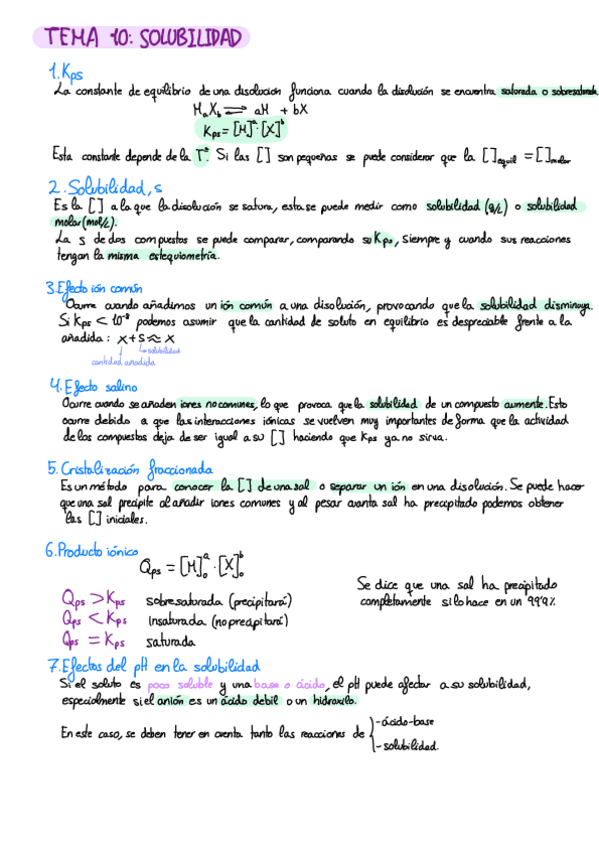 TEMA 10: SOLUBILIDAD
1. Kps
La constante de equilibrio de una disolución funciona cuando la disolución se encuentra saturada o sobresaturada.
MaXb ⇌ aM + bX
Kps = [M]^a · [X]^b
Esta constante depende de la Tª. Si las [ ] son pequeñas se puede considerar que la [ ]equil = [ ]molar
2. Solubilidad, s
Es la [ ] a la que la disolución se satura, esta se puede medir como solubilidad (g/L) o solubilidad
molar (mol/L).
La s de dos compuestos se puede comparar, comparando su Kps, siempre y cuando sus reacciones
tengan la misma estequiometría.
3. Efecto ión común
Ocurre cuando añadimos un ión común a una disolución, provocando que la solubilidad disminuya.
Si Kps < 10^-8 podemos asumir que la cantidad de soluto en equilibrio es despreciable frente a la
añadida: x + s ≈ x
solubilidad
cantidad añadida
4. Efecto salino
Ocurre cuando se añaden iones no comunes, lo que provoca que la solubilidad de un compuesto aumente. Esto
ocurre debido a que las interacciones iónicas se vuelven muy importantes de forma que la actividad
de los compuestos deja de ser igual a su [ ] haciendo que Kps ya no sirva.
5. Cristalización fraccionada
Es un método para conocer la [ ] de una sal o separar un ión en una disolución. Se puede hacer
que una sal precipite al añadir iones comunes y al pesar cuanta sal ha precipitado podemos obtener
las [ ] iniciales.
6. Producto iónico
Qps = [M]₀^a · [X]₀^b
Qps > Kps sobresaturada (precipitará)
Qps < Kps insaturada (no precipitará)
Qps = Kps saturada
Se dice que una sal ha precipitado
completamente si lo hace en un 99'9%
7. Efectos del pH en la solubilidad
Si el soluto es poco soluble y una base o ácido, el pH puede afectar a su solubilidad,
especialmente si el anión es un ácido debil o un hidroxilo.
En este caso, se deben tener en cuenta tanto las reacciones de
- ácido-base
- solubilidad.